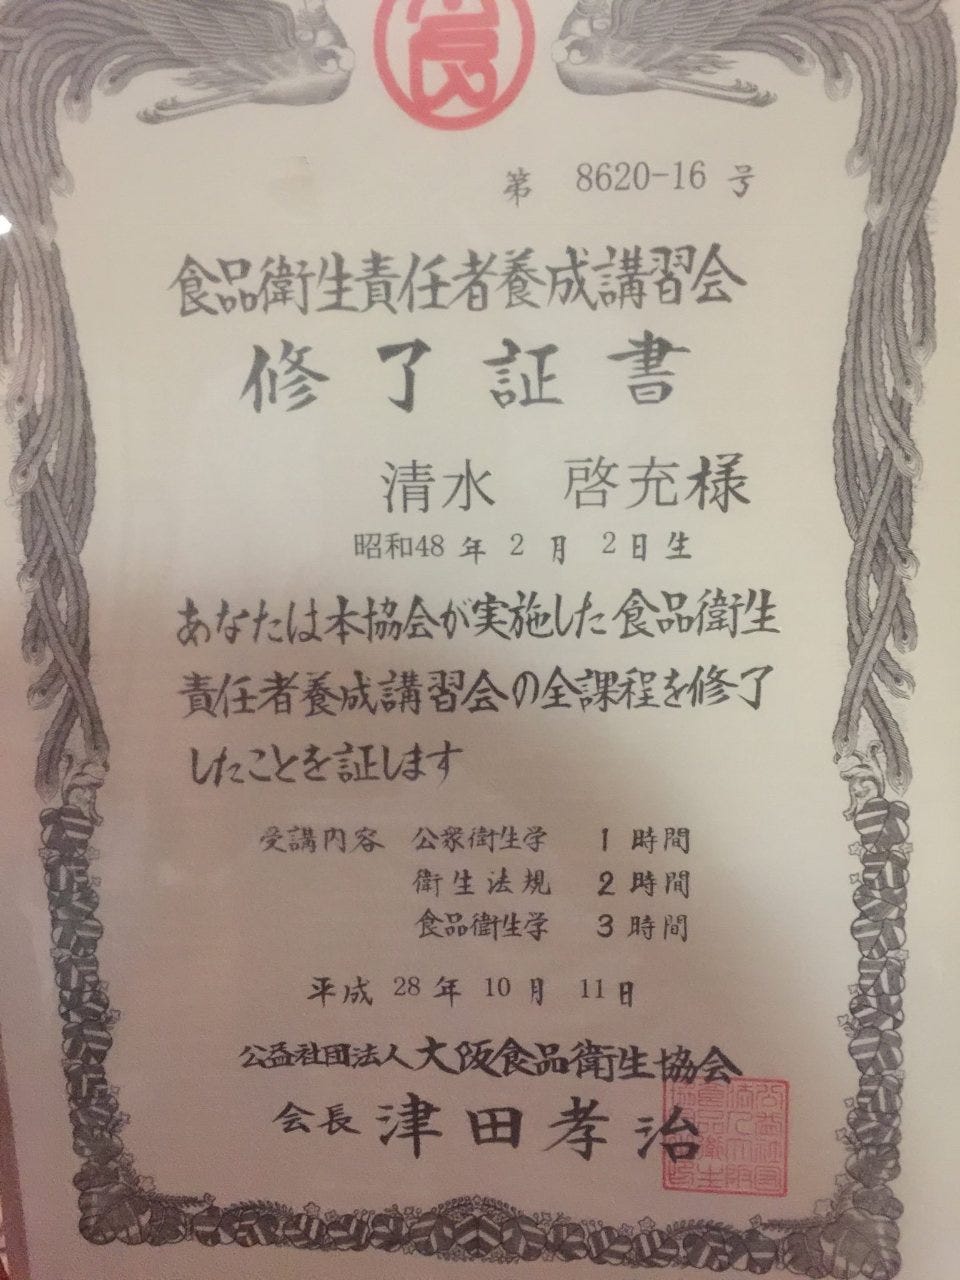 食
第 8620-16 号
食品衛生責任者養成講習会
修了証書
清水 啓充様
昭和48年2月2日生
あなたは本協会が実施した食品衛生
責任者養成講習会の全課程を修了
したことを証します
受講内容 公衆衛生学 1時間
衛生法規 2時間
食品衛生学 3時間
平成28年10月11日
公益社団法人大阪食品衛生協会
会長 津田孝治